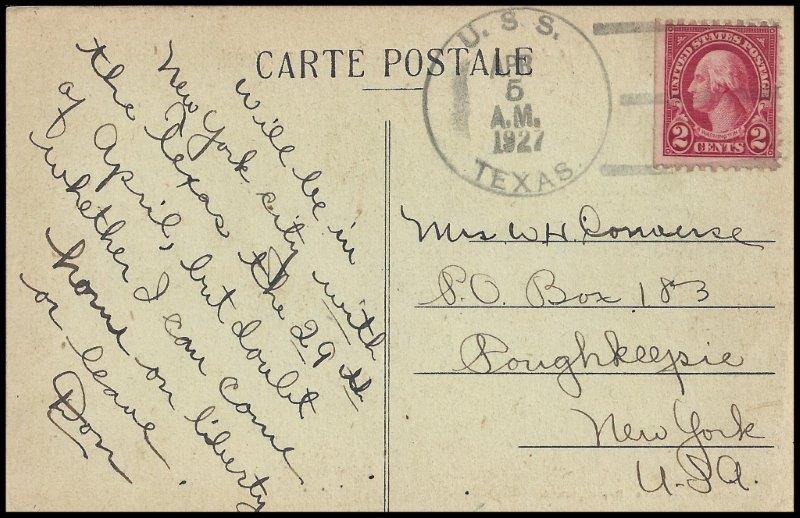 CARTE POSTALE
U.S.S.
APR
5
A.M.
1927
TEXAS.
UNITED STATES POSTAGE
WASHINGTON
2 2
CENTS
will be in
New York city with
the Texas the 29th
of April, but doubt
whether I can come
home on liberty
or leave.
Don
Mrs W.H. Converse
P.O. Box 183
Poughkeepsie
New York
U.S.A.